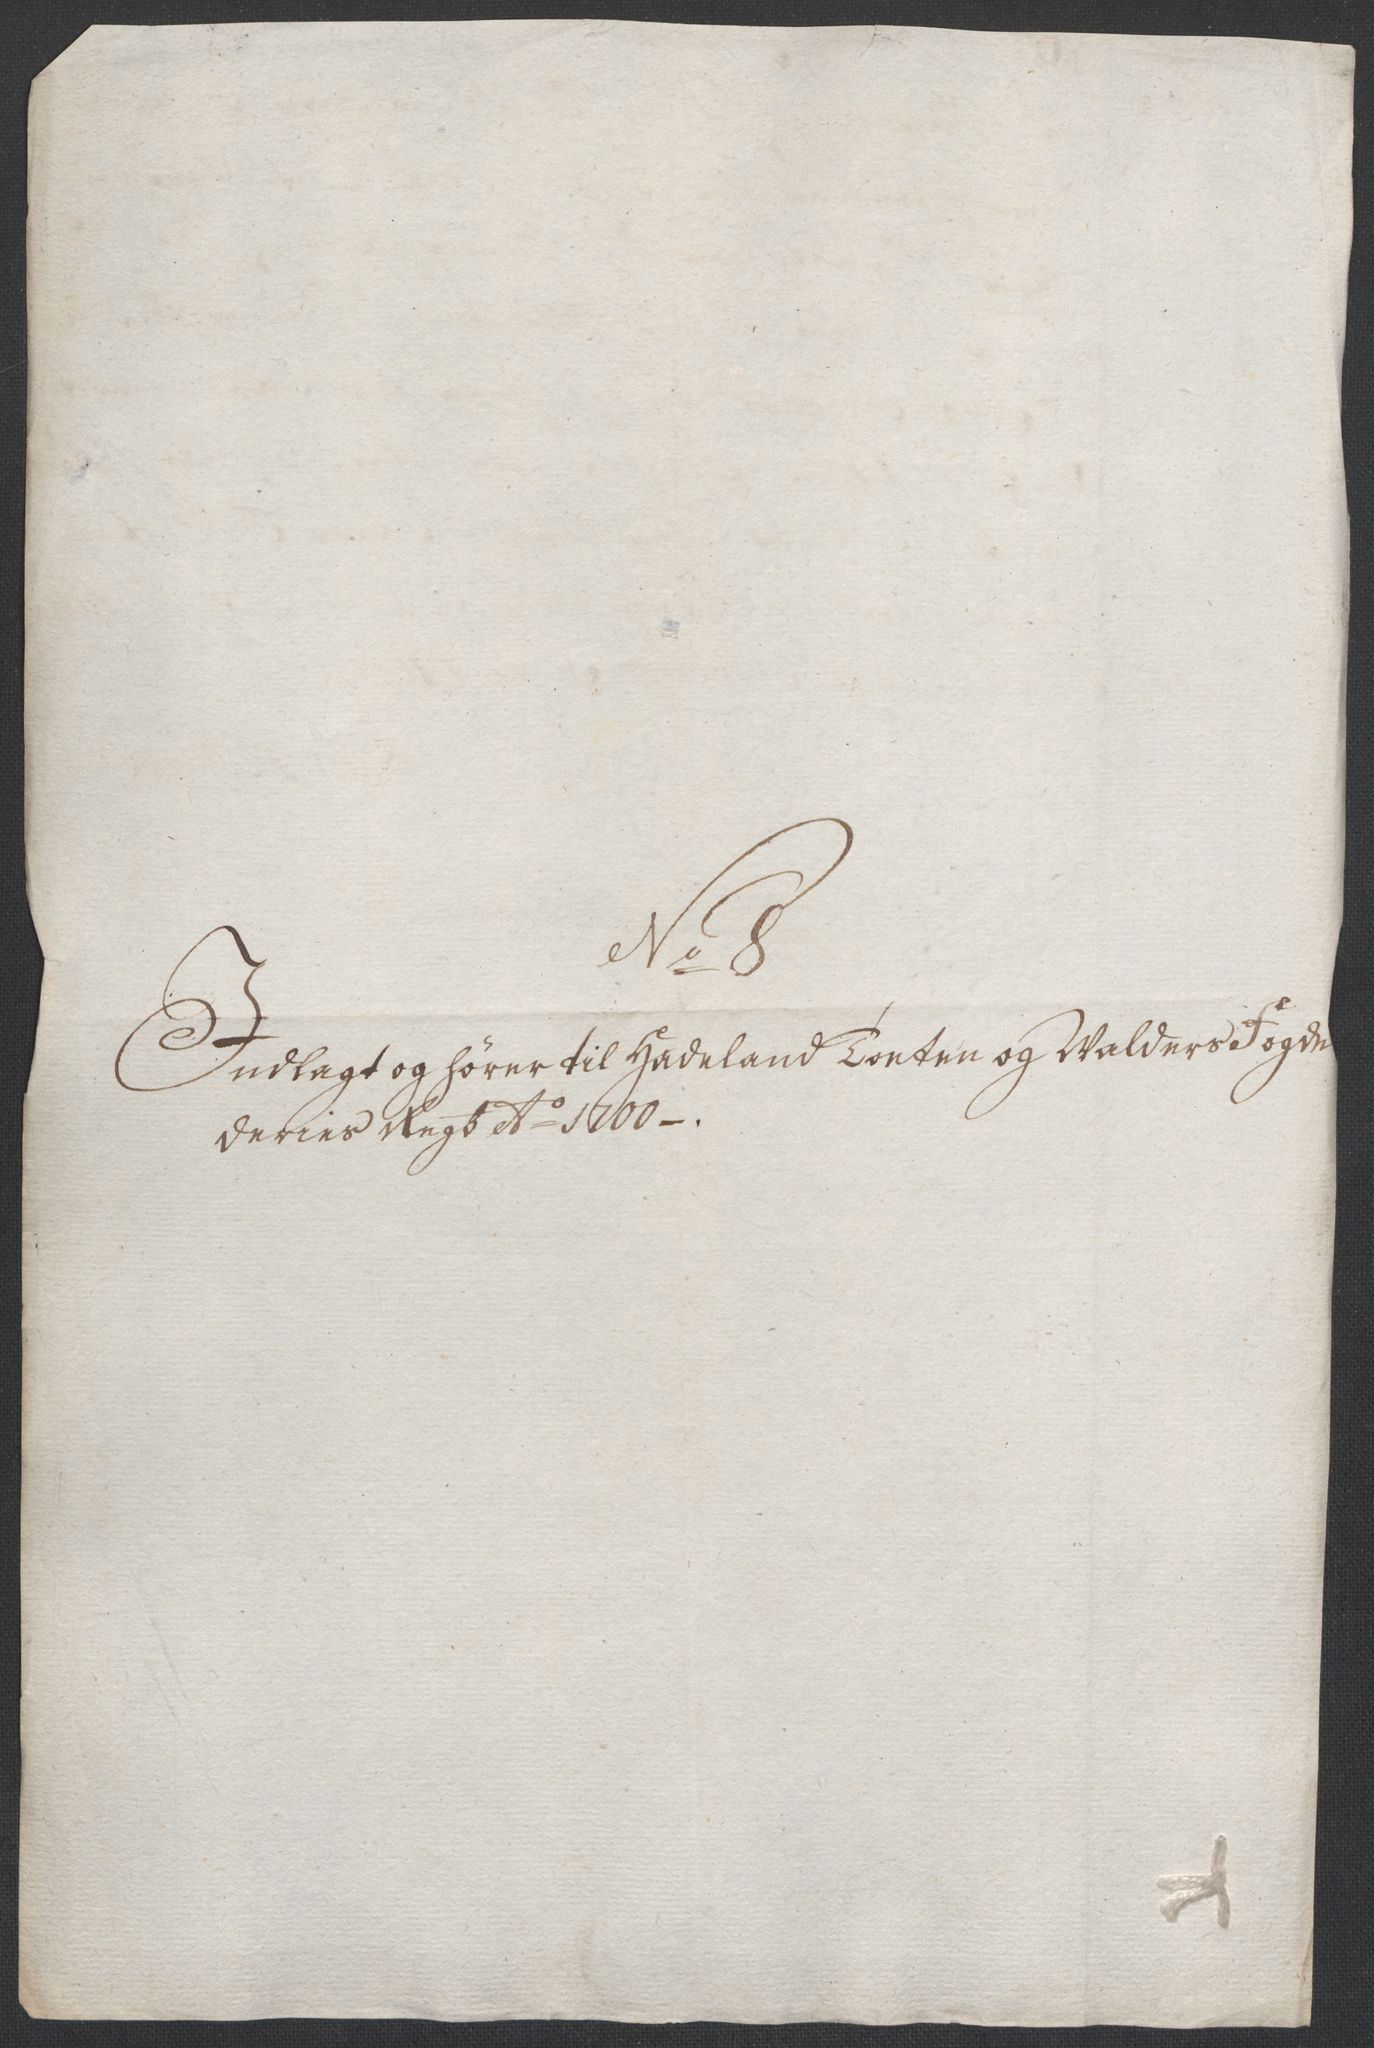 No 8
Indlagt og hører til Hadeland Toeten og Walders Fogde
deries Regb Ao 1700 -.